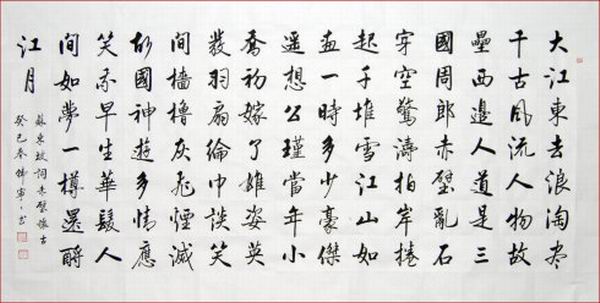 大江東去浪淘尽
千古風流人物故
壘西邊人道是三
國周郎赤壁亂石
穿空驚濤拍岸捲
起千堆雪江山如
畫一時多少豪傑
遥想公瑾當年小
喬初嫁了雄姿英
發羽扇綸巾談笑
間檣櫓灰飛煙滅
故國神遊多情應
笑我早生華髮人
間如夢一樽還酹
江月
蘇東坡詞赤壁懷古
癸巳春韓寧書